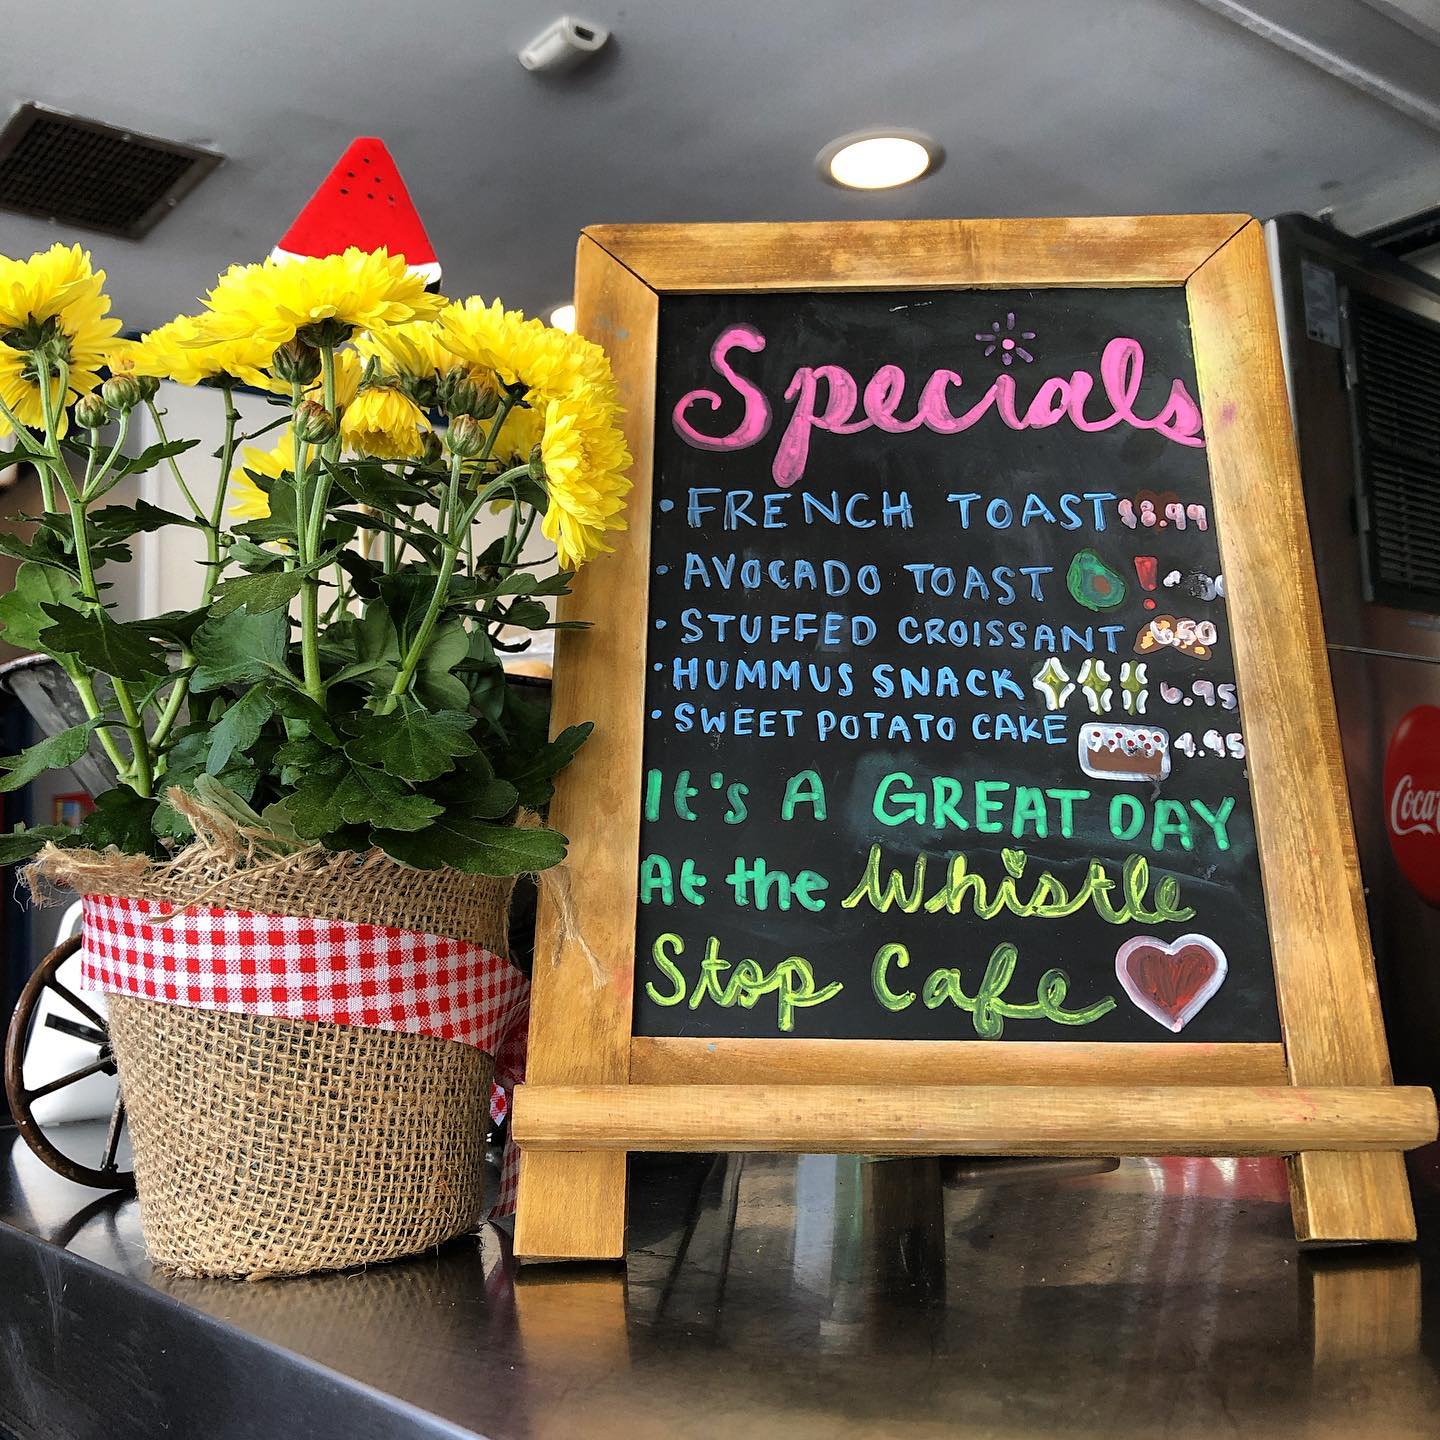 Specials
• FRENCH TOAST $8.99
• AVOCADO TOAST !
• STUFFED CROISSANT 6.50
• HUMMUS SNACK 6.95
• SWEET POTATO CAKE 4.95
It's A GREAT DAY
At the Whistle
Stop Cafe